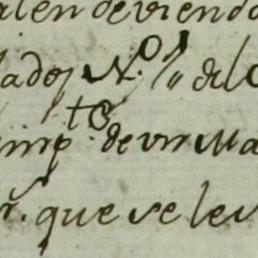 valen deviendo
lados N.º 1,, del
imp.to de vn Ma
r. que se les